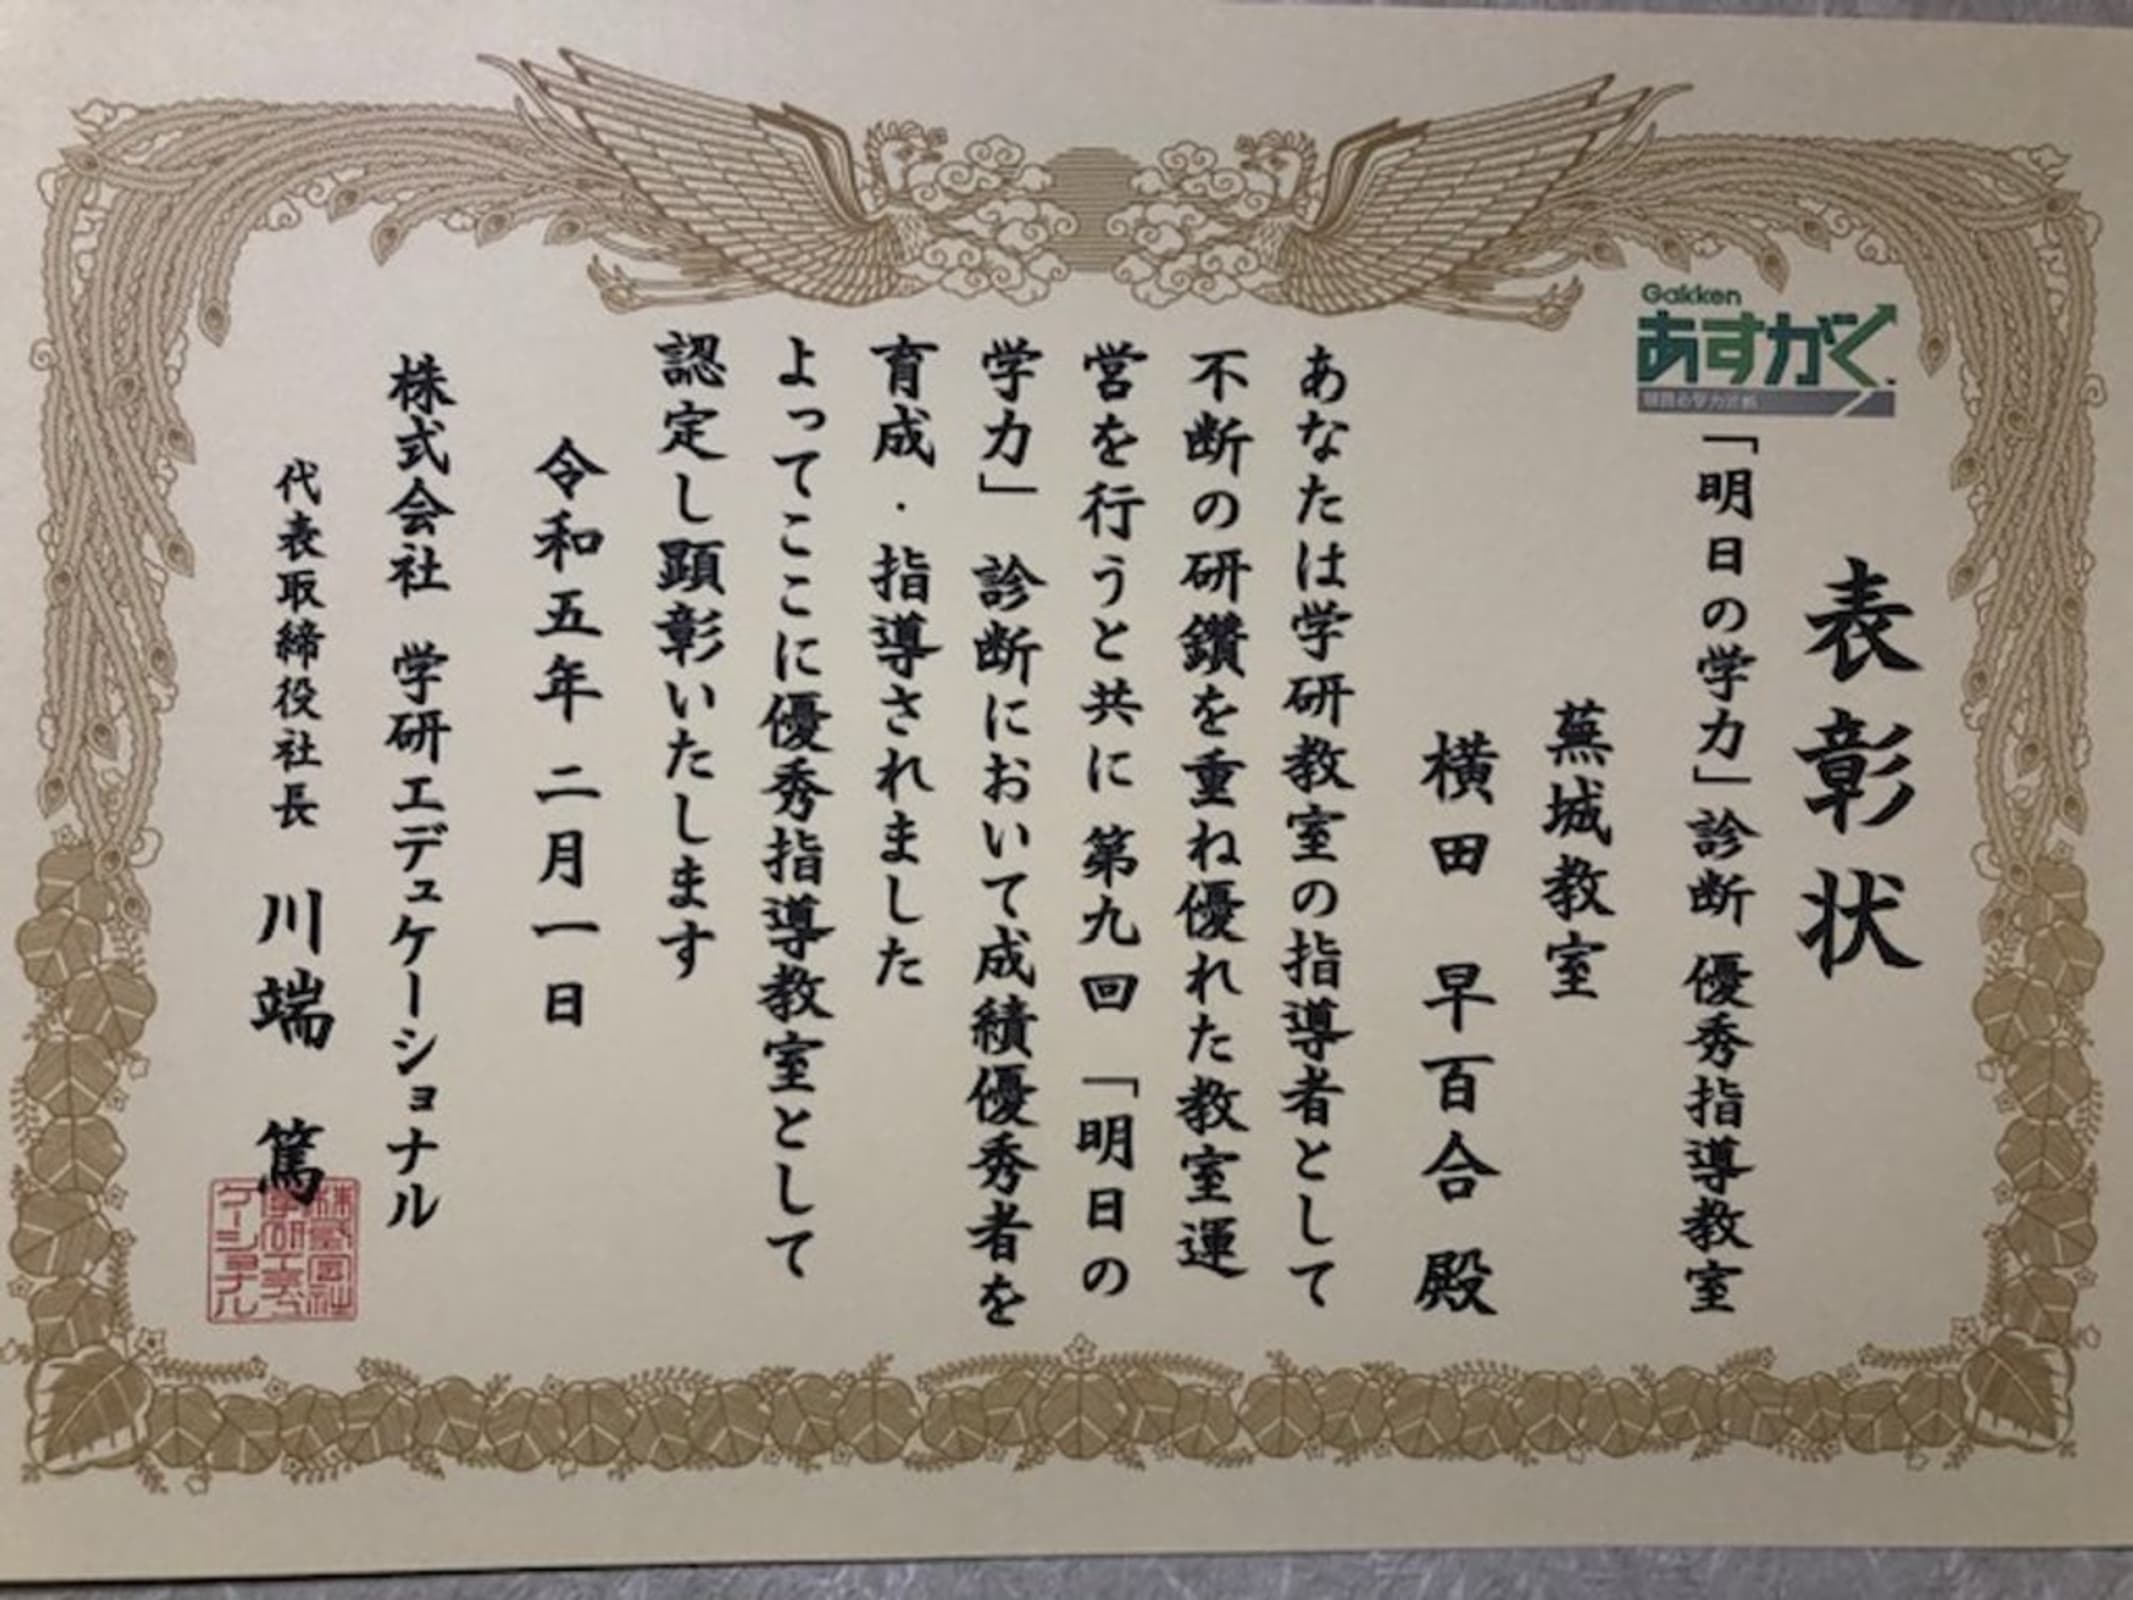 表彰状
Gakken
あすがく
「明日の学力」診断 優秀指導教室
蕪城教室
横田 早百合 殿
あなたは学研教室の指導者として
不断の研鑽を重ね優れた教室運
営を行うと共に 第九回 「明日の
学力」 診断において成績優秀者を
育成・指導されました
よってここに優秀指導教室として
認定し顕彰いたします
令和五年二月一日
株式会社 学研エデュケーショナル
代表取締役社長 川端 篤